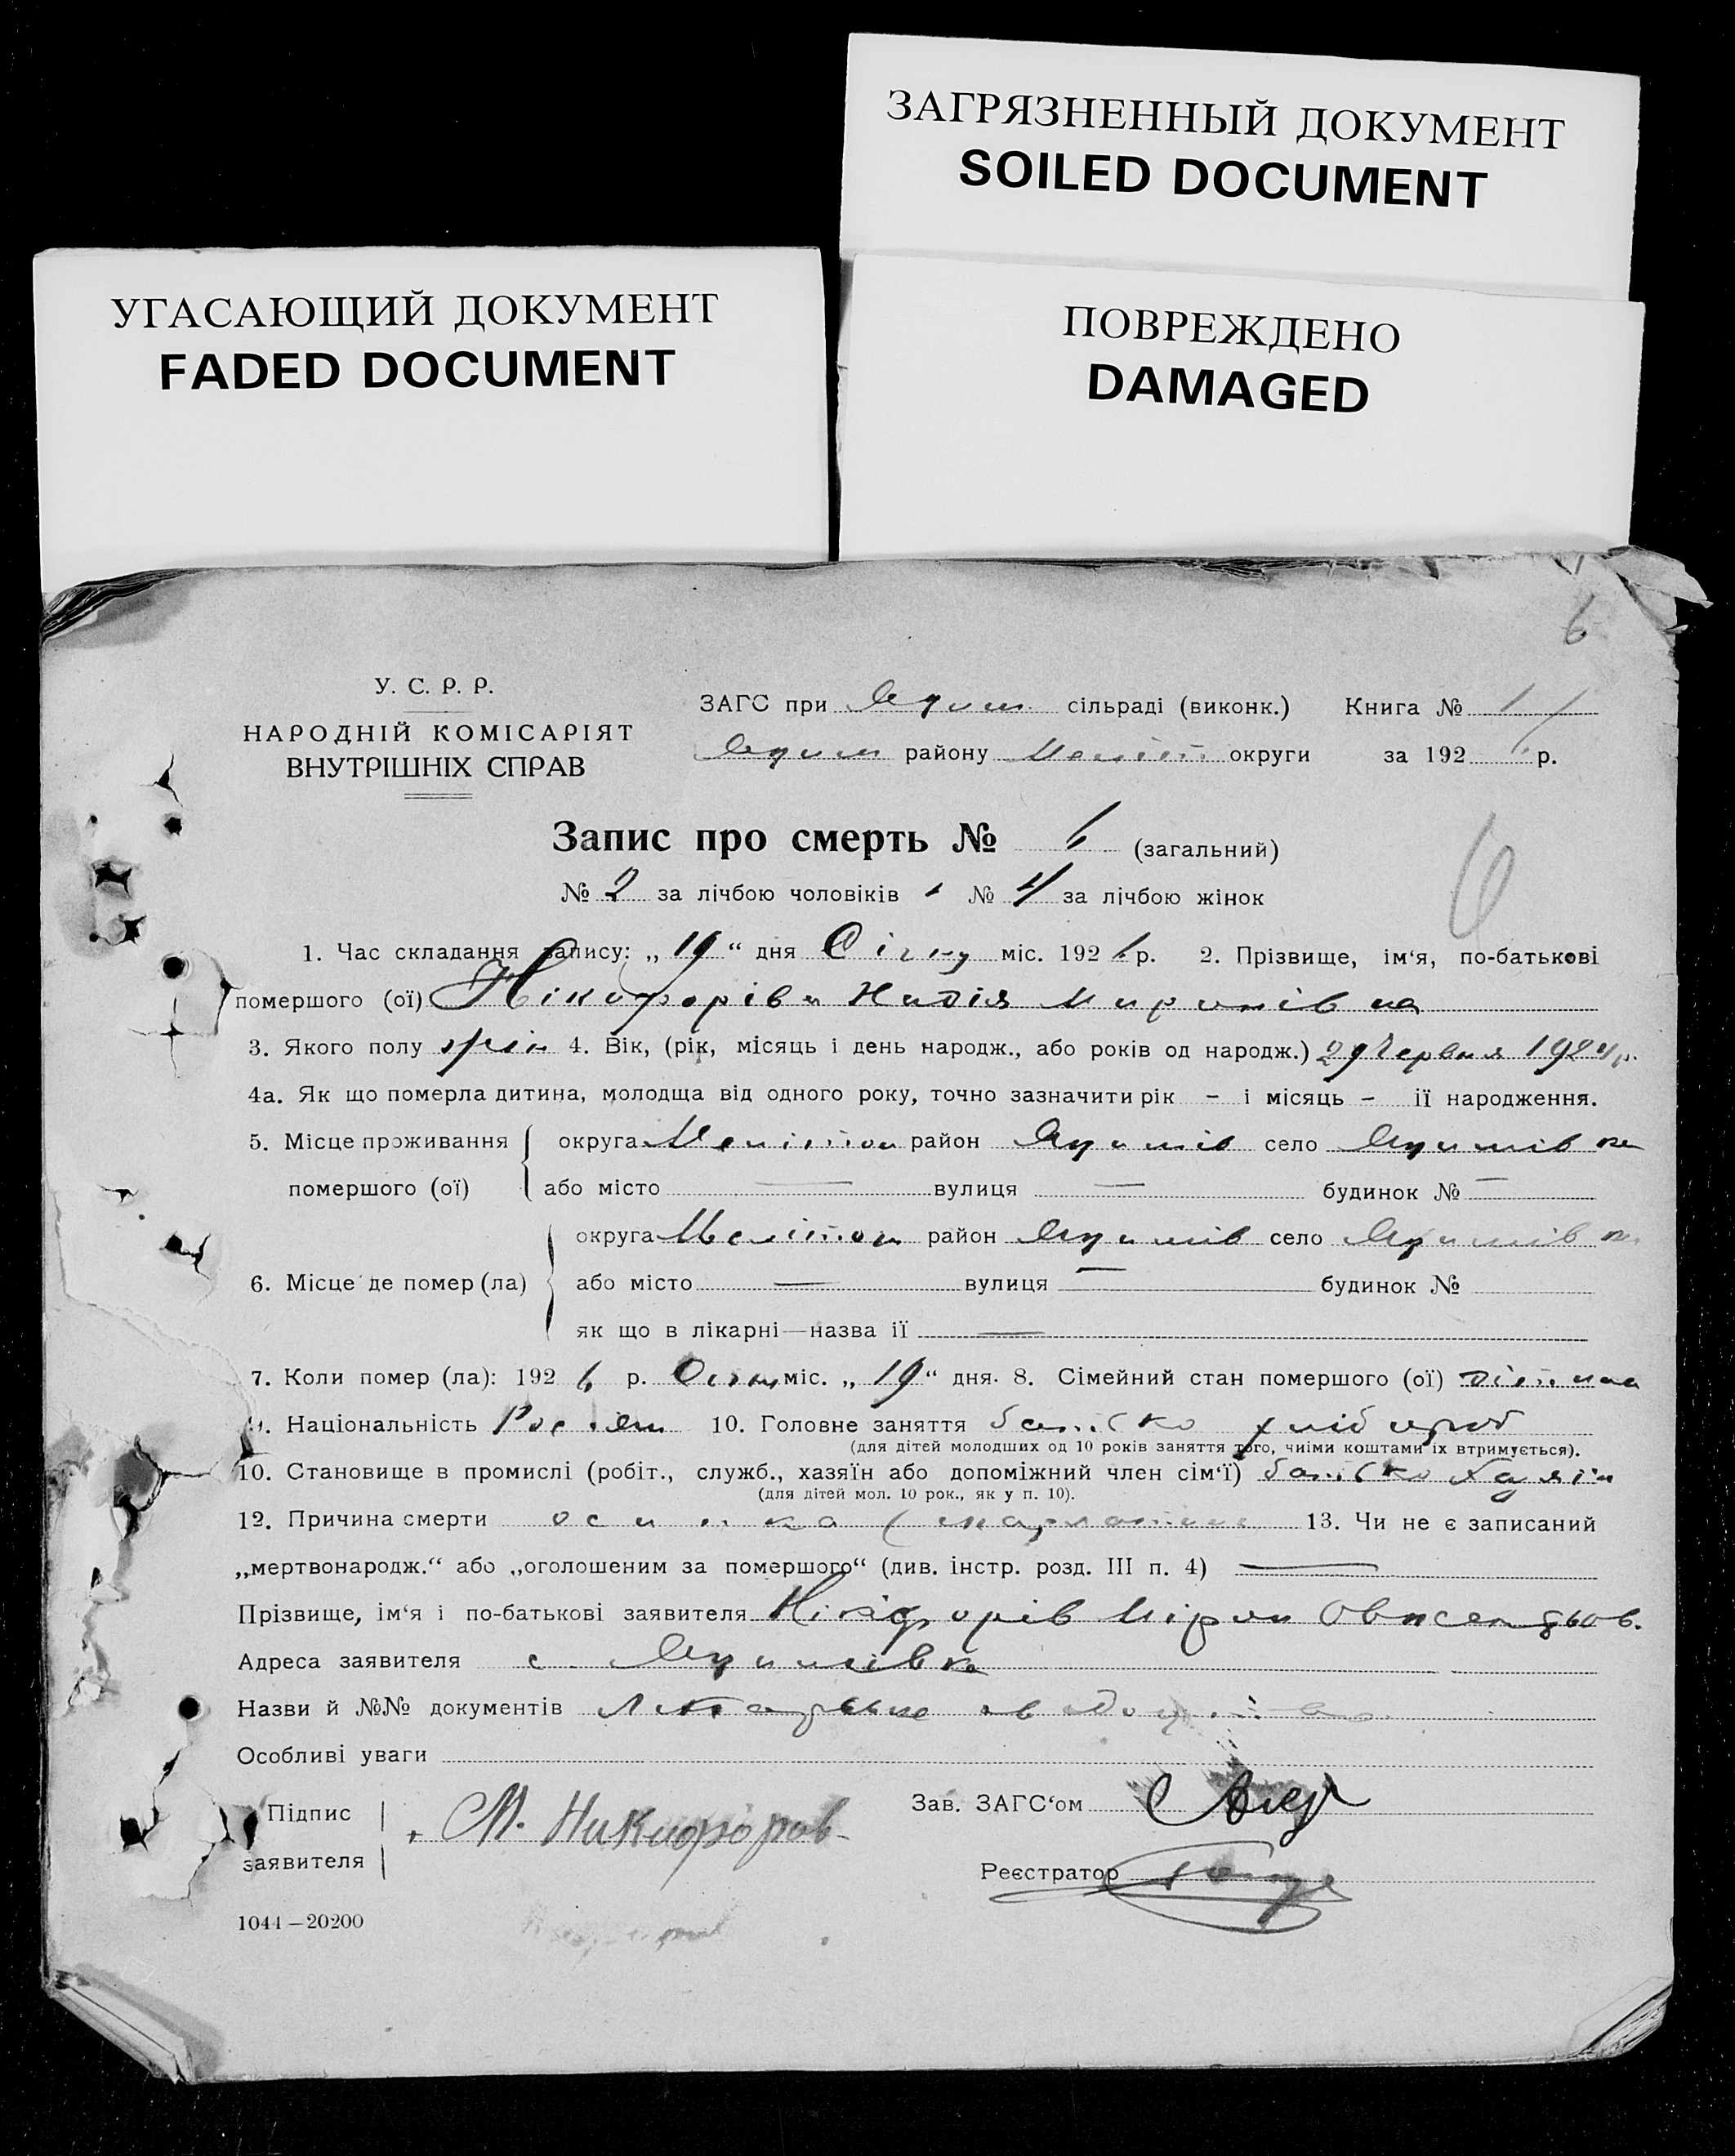 ЗАГРЯЗНЕННЫЙ ДОКУМЕНТ
SOILED DOCUMENT
УГАСАЮЩИЙ ДОКУМЕНТ
FADED DOCUMENT
ПОВРЕЖДЕНО
DAMAGED
6
У. С. Р. Р.
НАРОДНІЙ КОМІСАРІЯТ
ВНУТРІШНІХ СПРАВ
ЗАГС при сільраді (виконк.) Книга № 1
району округи за 192 р.
Запис про смерть № 6 (загальний)
6
№ 2 за лічбою чоловіків № 4 за лічбою жінок
1. Час складання запису: „ 19 “ дня Січня міс. 192 6 р. 2. Прізвище, ім‘я, по-батькові
помершого (ої) Нікифорівa Надія Миронівна
3. Якого полу жін 4. Вік, (рік, місяць і день народж., або років од народж.) 29 Червня 1924 р.
4а. Як що померла дитина, молодща від одного року, точно зазначити рік – і місяць – ії народження.
5. Місце проживання округа Меліттоп район Якимів село Якимівка
помершого (ої) або місто — вулиця — будинок № —
округа Меліттоп район Якимів село Якимівка
6. Місце де помер (ла) або місто — вулиця — будинок №
як що в лікарні—назва ії —
7. Коли помер (ла): 192 6 р. Січня міс. „ 19 “ дня. 8. Сімейний стан помершого (ої)
9. Національність 10. Головне заняття батько хлібороб
(для дітей молодших од 10 років заняття того, чиіми коштами їх втримується).
10. Становище в промислі (робіт., служб., хазяїн або допоміжний член сім‘ї) батько Хазяін
(для дітей мол. 10 рок., як у п. 10).
12. Причина смерти 13. Чи не є записаний
„мертвонародж.“ або „оголошеним за помершого“ (див. інстр. розд. III п. 4) —
Прізвище, ім‘я і по-батькові заявителя Нікіфорів Мірон
Адреса заявителя с. Якимівка
Назви й №№ документів
Особливі уваги
Підпис
заявителя
М. Никифоров
Зав. ЗАГС‘ом
Реєстратор
1044 — 20200